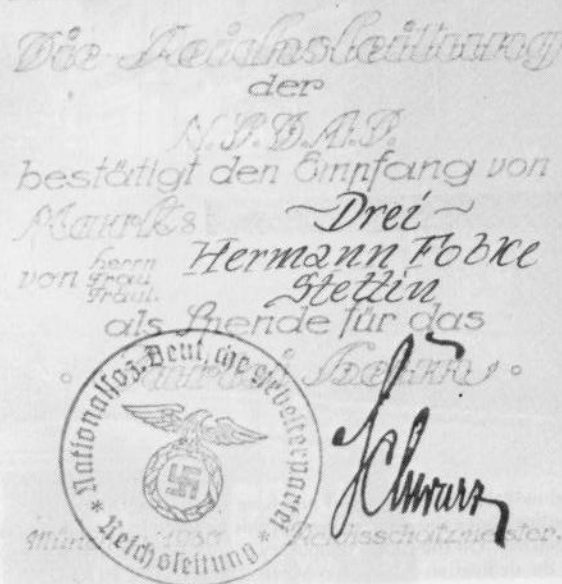 Die Reichsleitung
der
N.S.D.A.P.
bestätigt den Empfang von
Mark: ~Drei~
von Herrn Frau Fräul. Hermann Fobke
Stettin
als Spende für das
Nationalsoz. Deutsche Arbeiterpartei
* Reichsleitung *
Schwarz
1930 Reichsschatzmeister.